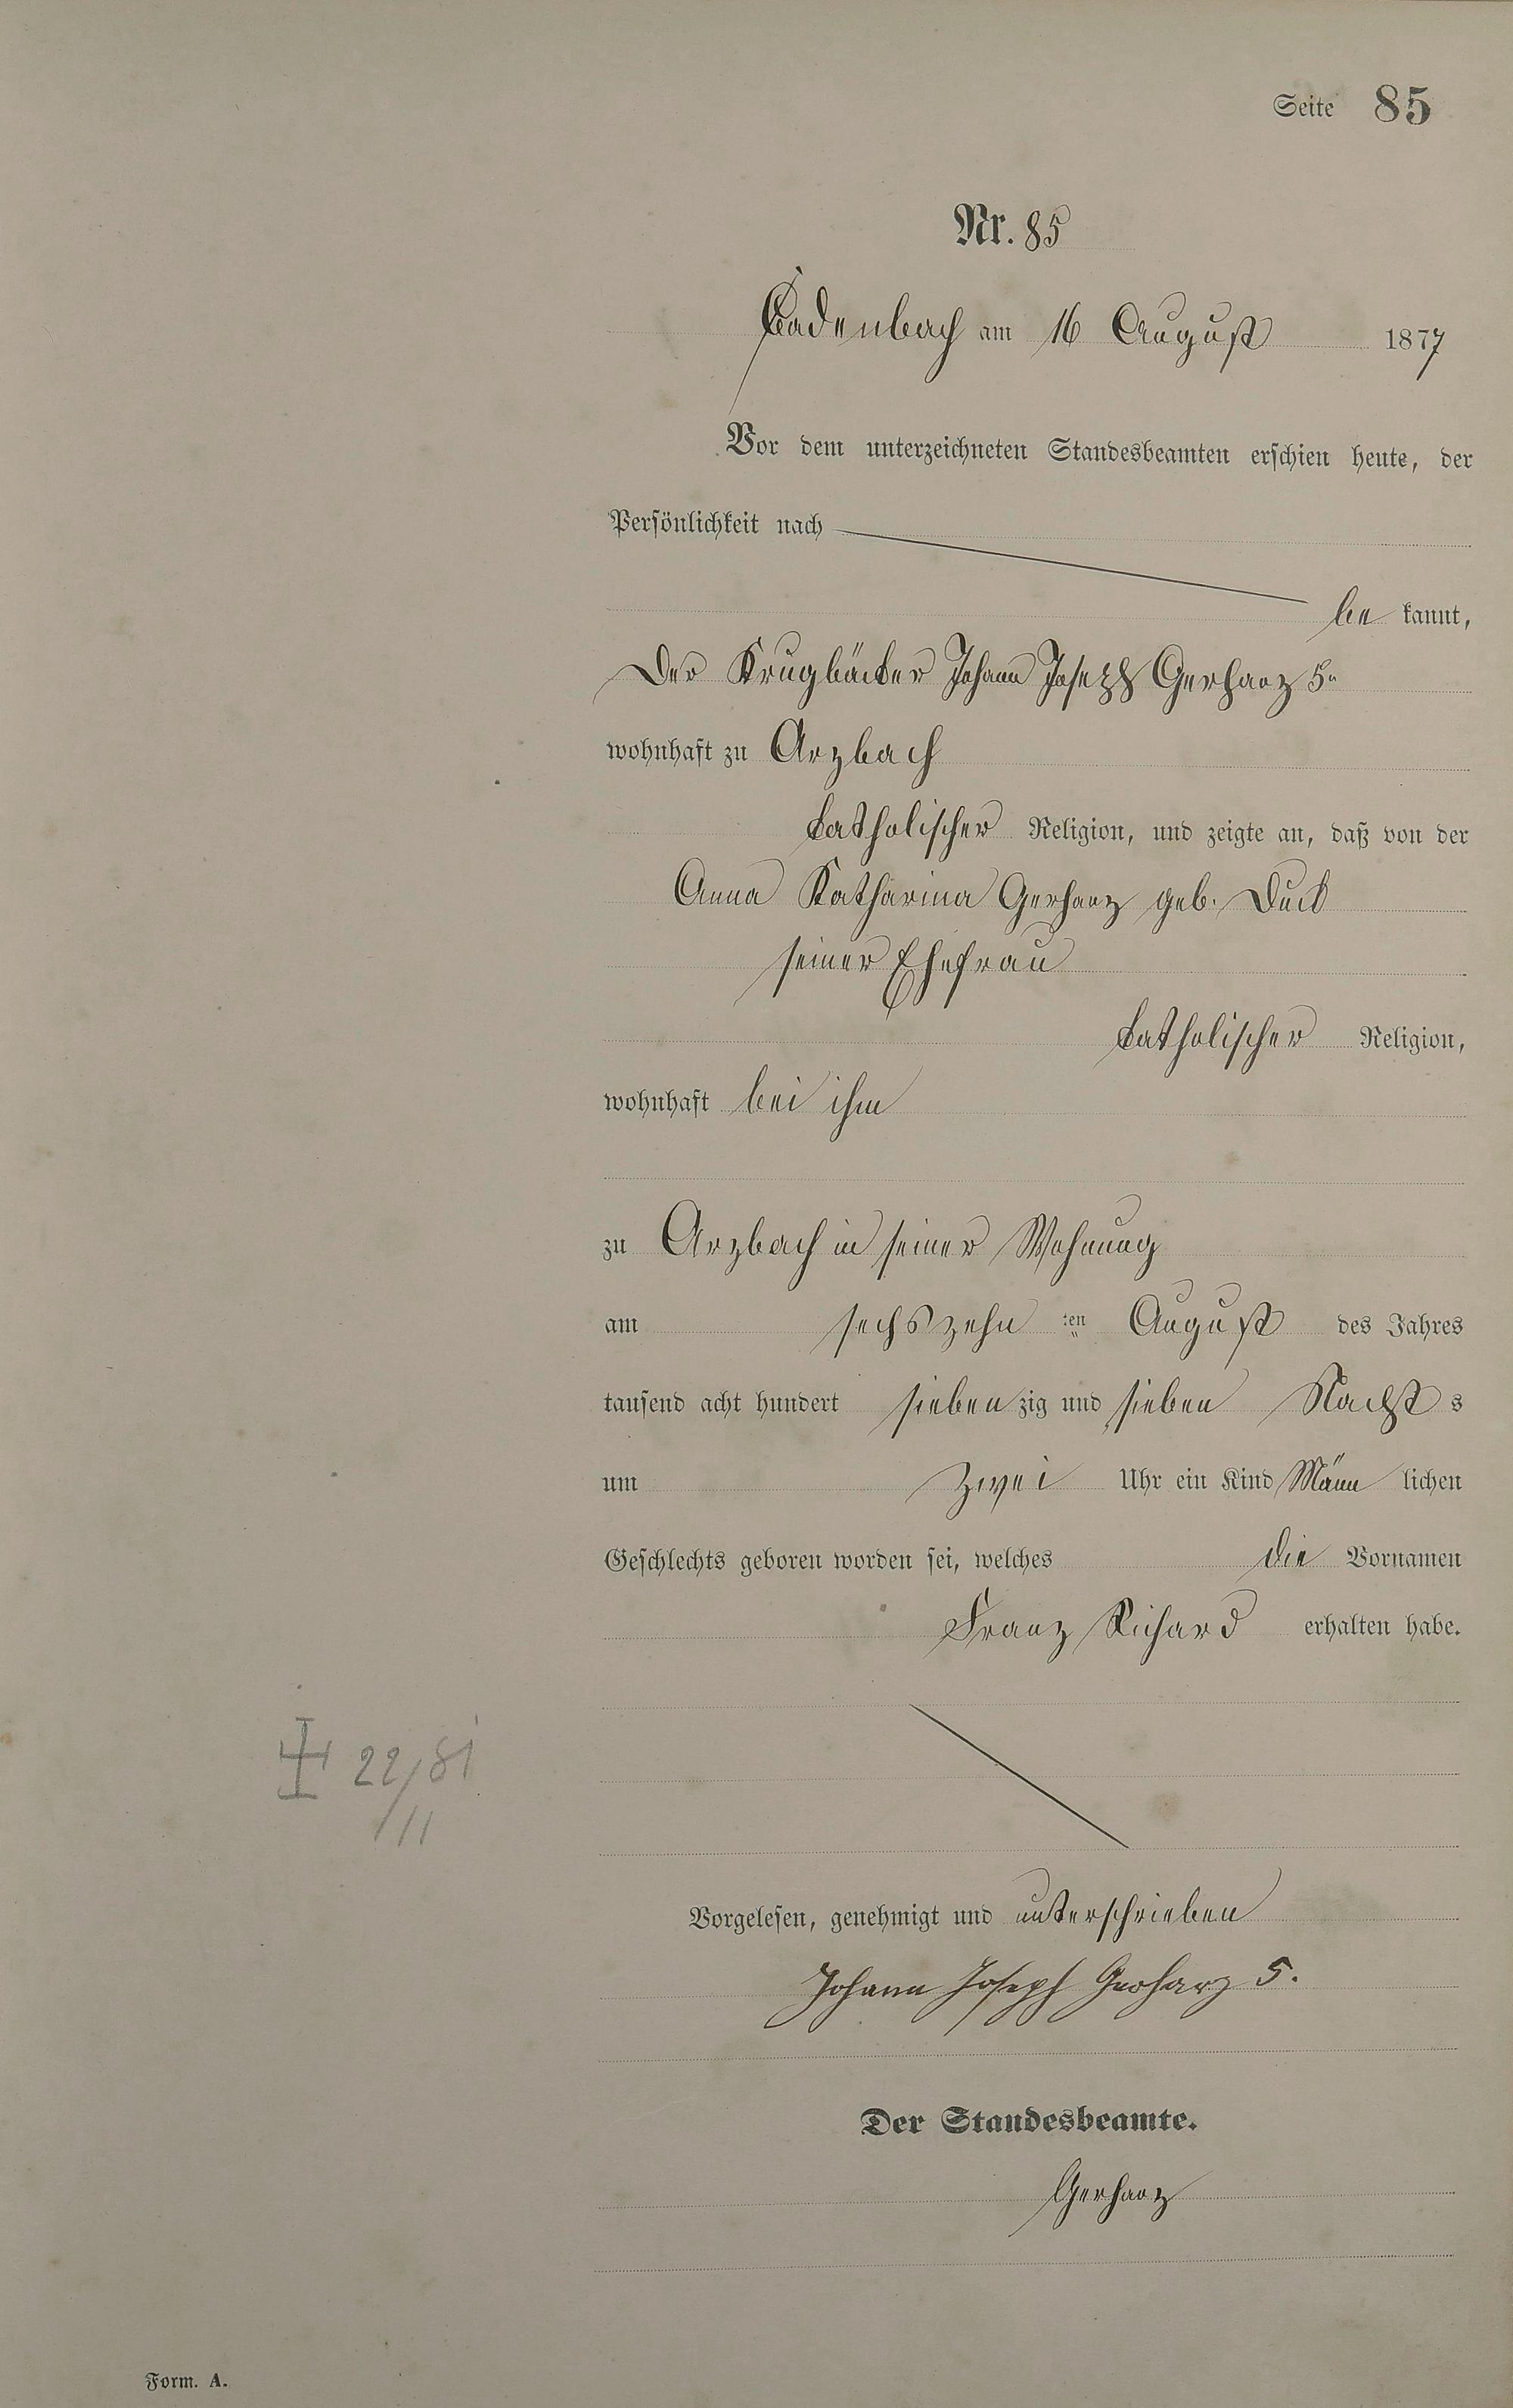 Seite 85
Nr. 85
Cadenbach am 16 August 1877
Vor dem unterzeichneten Standesbeamten erschien heute, der
Persönlichkeit nach
be kannt,
Der Krugbäcker Johann Joseph Gerharz 5r
wohnhaft zu Arzbach
katholischer Religion, und zeigte an, daß von der
Anna Katharina Gerharz geb. Duck
seiner Ehefrau
katholischer Religion,
wohnhaft bei ihm
zu Arzbach in seiner Wohnung
am sechszehn ten August des Jahres
tausend acht hundert sieben zig und sieben Nacht s
um zwei Uhr ein Kind Männ lichen
Geschlechts geboren worden sei, welches die Vornamen
Franz Richard erhalten habe.
22/81
/11
Vorgelesen, genehmigt und unterschrieben
Johann Joseph Gerharz 5.
Der Standesbeamte.
Gerharz
Form. A.